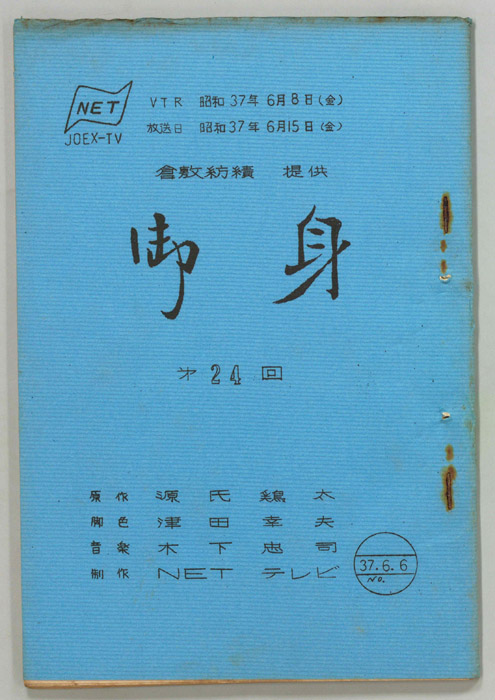 NET
JOEX-TV
VTR 昭和37年 6月8日(金)
放送日 昭和37年 6月15日(金)
倉敷紡績 提供
御身
第24回
原作 源氏鶏太
脚色 津田幸夫
音楽 木下忠司
制作 NET テレビ
37.6.6
NO.